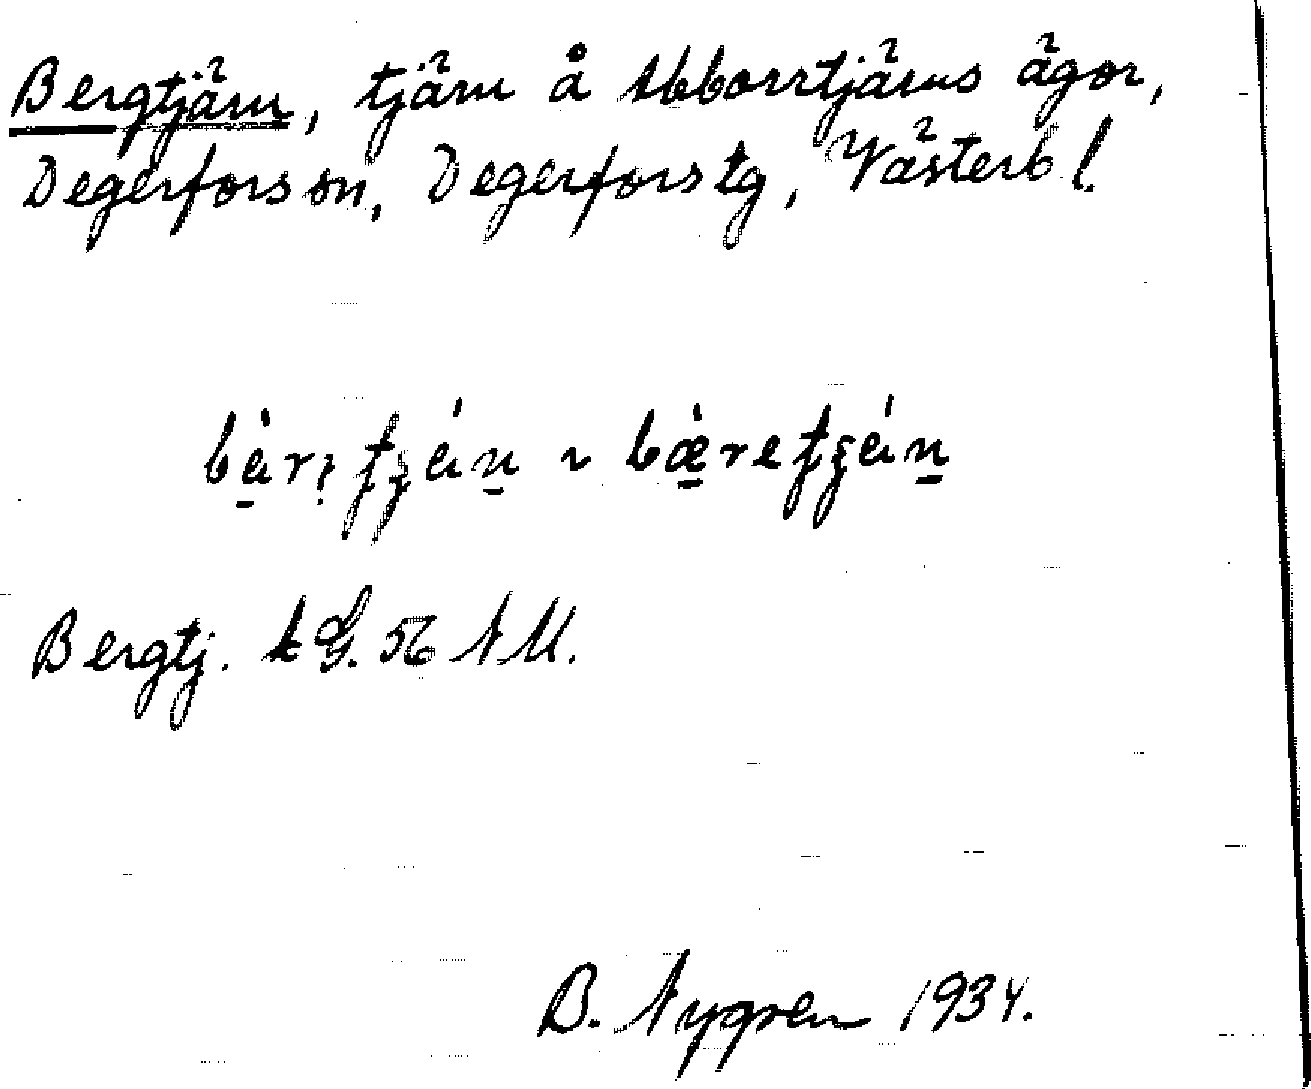 Bergtjärn, tjärn å Abborrtjärns ägor,
Degerfors sn, Degerfors tg, Västerb l.
Bergtj. AS. 56 NM.
B. Nygren 1934.